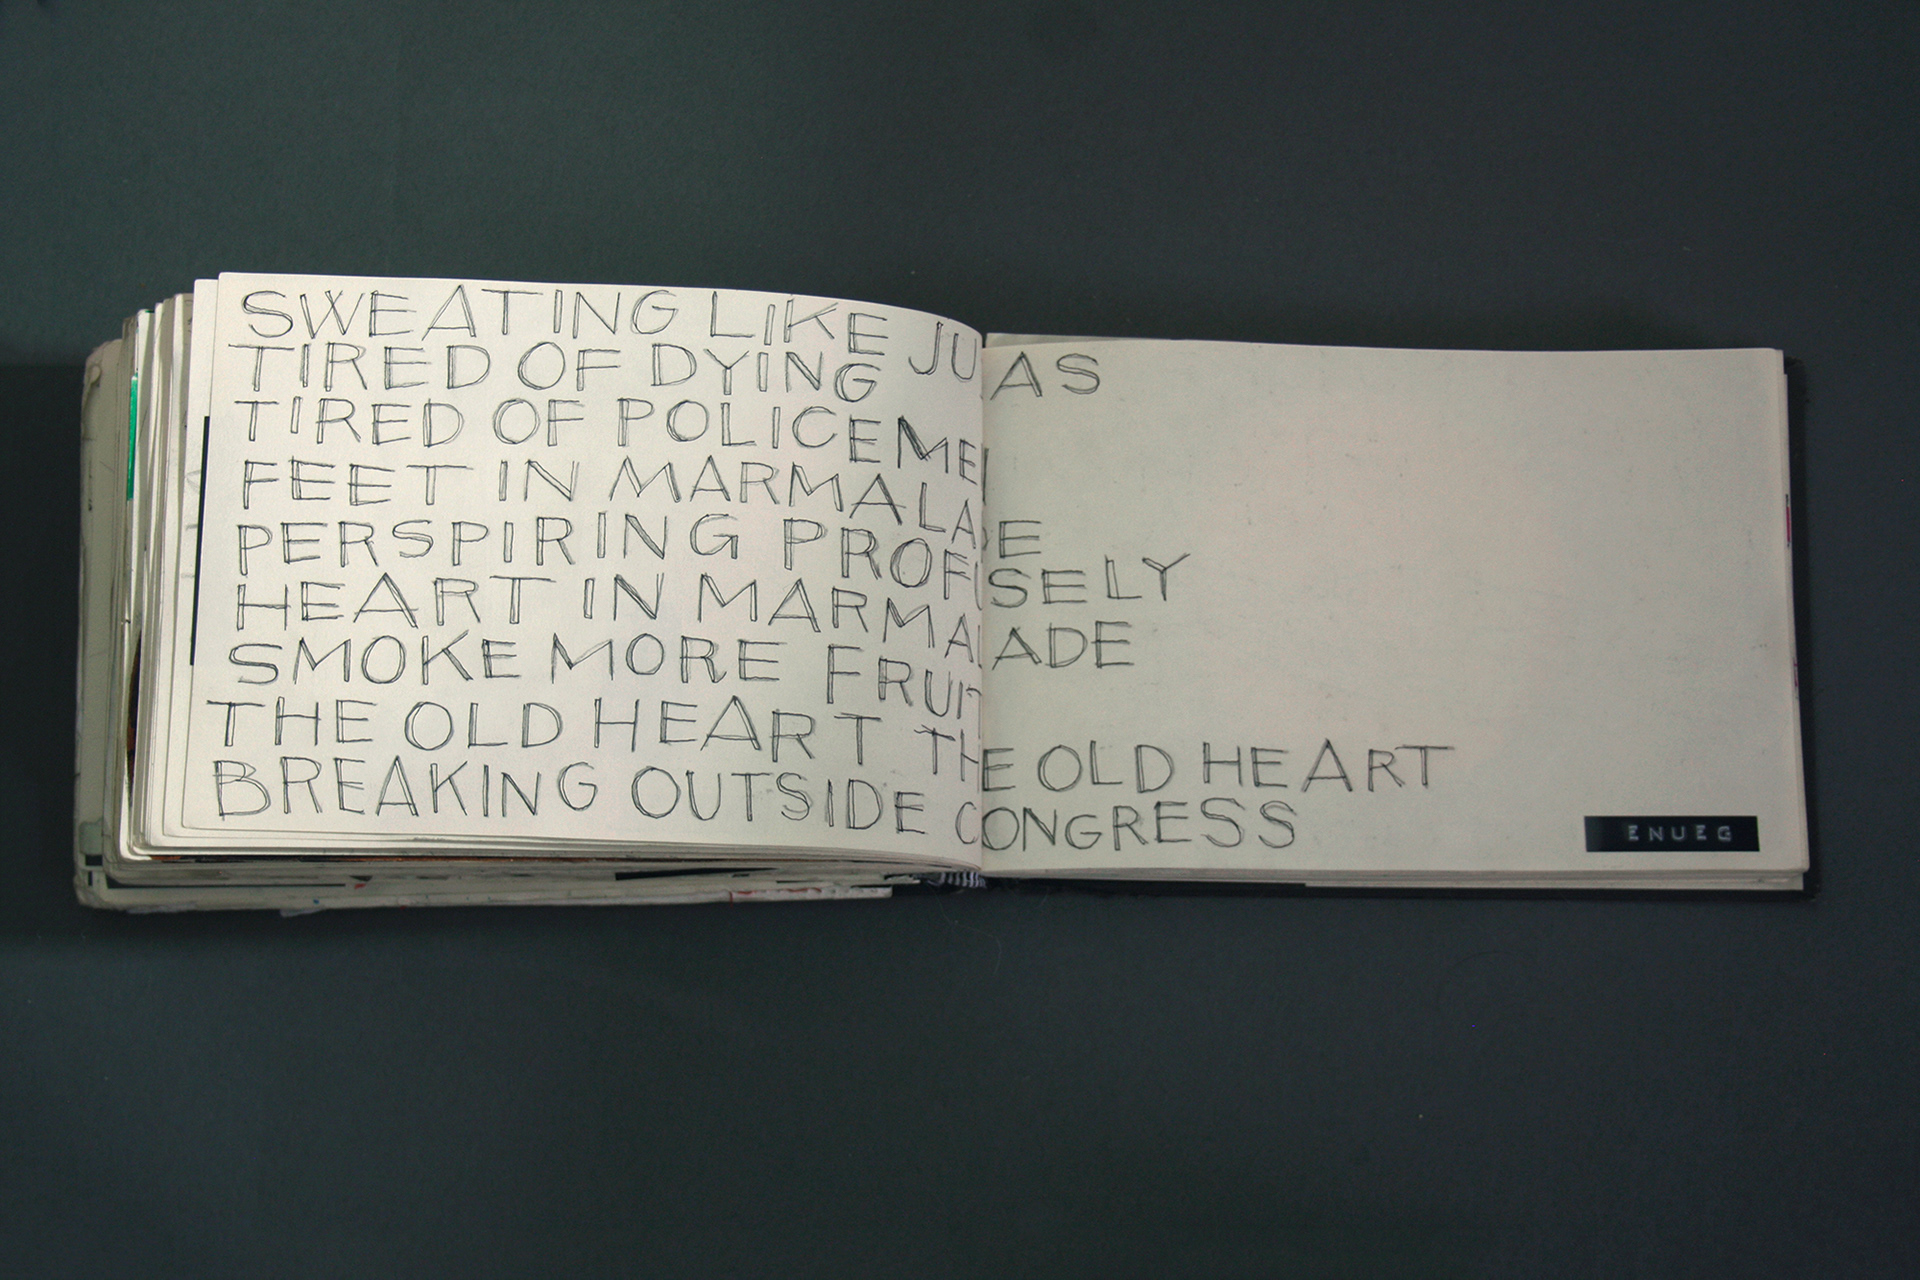 SWEATING LIKE JUAS
TIRED OF DYING
TIRED OF POLICEMEN
FEET IN MARMALADE
PERSPIRING PROFUSELY
HEART IN MARMALADE
SMOKE MORE FRUIT
THE OLD HEART THE OLD HEART
BREAKING OUTSIDE CONGRESS
ENUEG